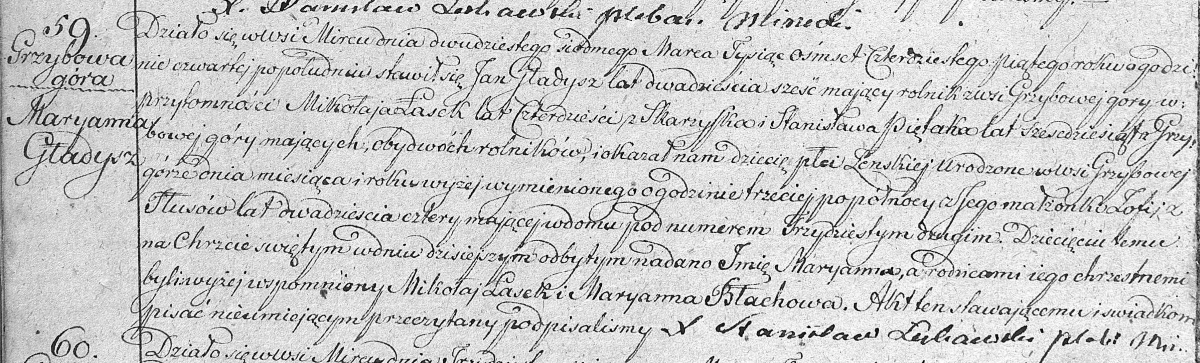 X. Stanisław Lubawski pleban Mirecki.
59.
Grzybowa
góra
Maryanna
Gładysz
Działo się w Wsi Mircu dnia dwudziestego siodmego Marca Tysiąc ośmset Czterdziestego piątego roku o godzi-
nie czwartej popołudniu stawił się Jan Gładysz lat dwadzieścia sześć mający rolnik z wsi Grzybowej gory w:
przytomności Mikołaja Łasek lat Czterdzieści z Skarzyska i Stanisława Piętaka lat szesedziesiąt z Grzy-
bowej gory mających, obydwóch rolników, i okazał nam dziecię płci Zenskiej urodzone w wsi Grzybowej
górze dnia miesiąca i roku wyżej wymienionego o godzinie trzeciej popółnocy z Jego małżonki Zofij z
Tłusów lat dwadzieścia cztery mającej w domu pod numerem trzydziestym drugim. Dziecięciu temu
na Chrzcie świętym w dniu dzisiejszym odbytym nadano Imię Maryanna, a rodzicami iego chrzestnemi
byli wyżej wspomniony Mikołaj Łasek i Maryanna Błachowa. Akt ten stawaiącemu i swiadkom
pisać nieumiejącym przeczytany podpisalismy X Stanisław Lubawski pleb: Mir.
60.
Działo się w Wsi Mircu dnia